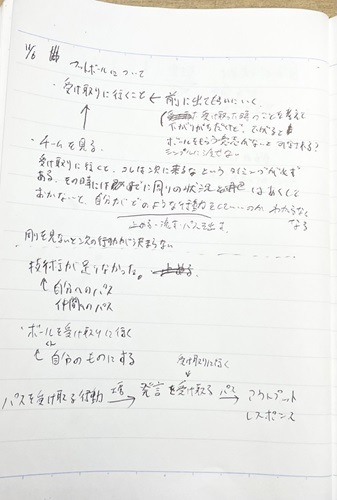 11/6 フットボールについて
・受け取りに行くこと ← 前に出てもらいにいく
( 受け取った時のことを考えて
下がりがちだけど、下がると
ボールをもらう意志がないと みなされる?
シンプルに
・チームを見る。
受け取りに行くと、これは次に来るな というタイミングが必ず
ある。その時には 既に周りの状況を 良くして
おかないと、自分がどのような行動をとていいのか わからなく
なる
止める・流す・パスを出す
周りを見ないと次の行動が決まらない
技術が足りなかった。
↑自分へのパス
仲間へのパス
・ボールを受け取りに行く
↑自分のものにする
受け取りに行く
パスを受け取る行動 → 発言を受け取る パス → アウトプット
レスポンス